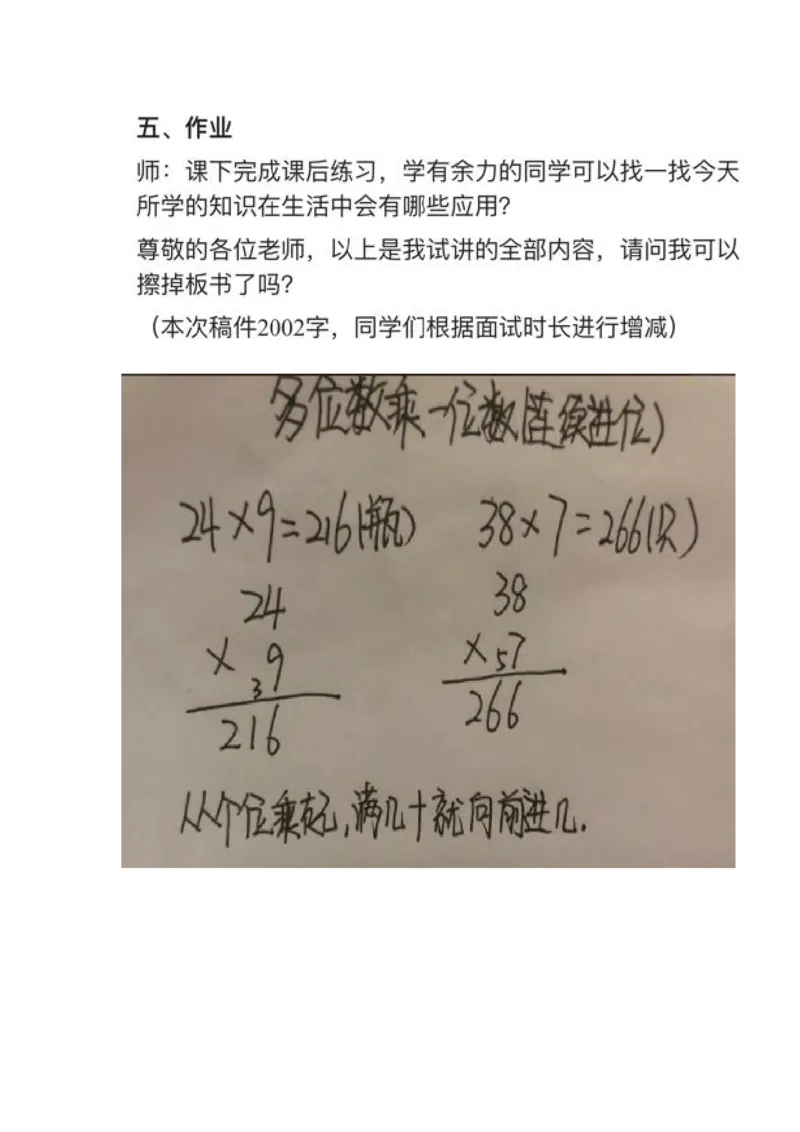 五、作业
师：课下完成课后练习，学有余力的同学可以找一找今天
所学的知识在生活中会有哪些应用？
尊敬的各位老师，以上是我试讲的全部内容，请问我可以
擦掉板书了吗？
（本次稿件2002字，同学们根据面试时长进行增减）
多位数乘一位数(连续进位)
24×9=216(瓶) 38×7=266(只)
24 38
×39 ×57
216 266
从个位乘起,满几十就向前进几.